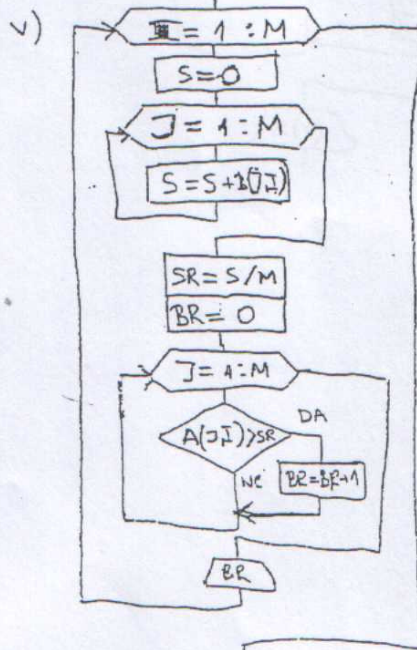 v)
I = 1 : M
S = 0
J = 1 : M
S = S + A(J I)
SR = S/M
BR = 0
J = 1 : M
A(J I) > SR
DA
NE
BR = BR + 1
BR